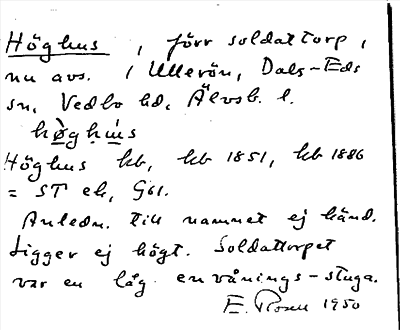 Höghus, förr soldattorp,
nu avs. i Ullerön, Dals-Eds
sn, Vedbo hd, Älvsb. l.
hø̀ghu̇́s
Höghus hb, hb 1851, hb 1886
= ST ek, G61.
Anledn. till namnet ej känd.
Ligger ej högt. Soldattorpet
var en låg envånings-stuga.
E. Rosen 1950